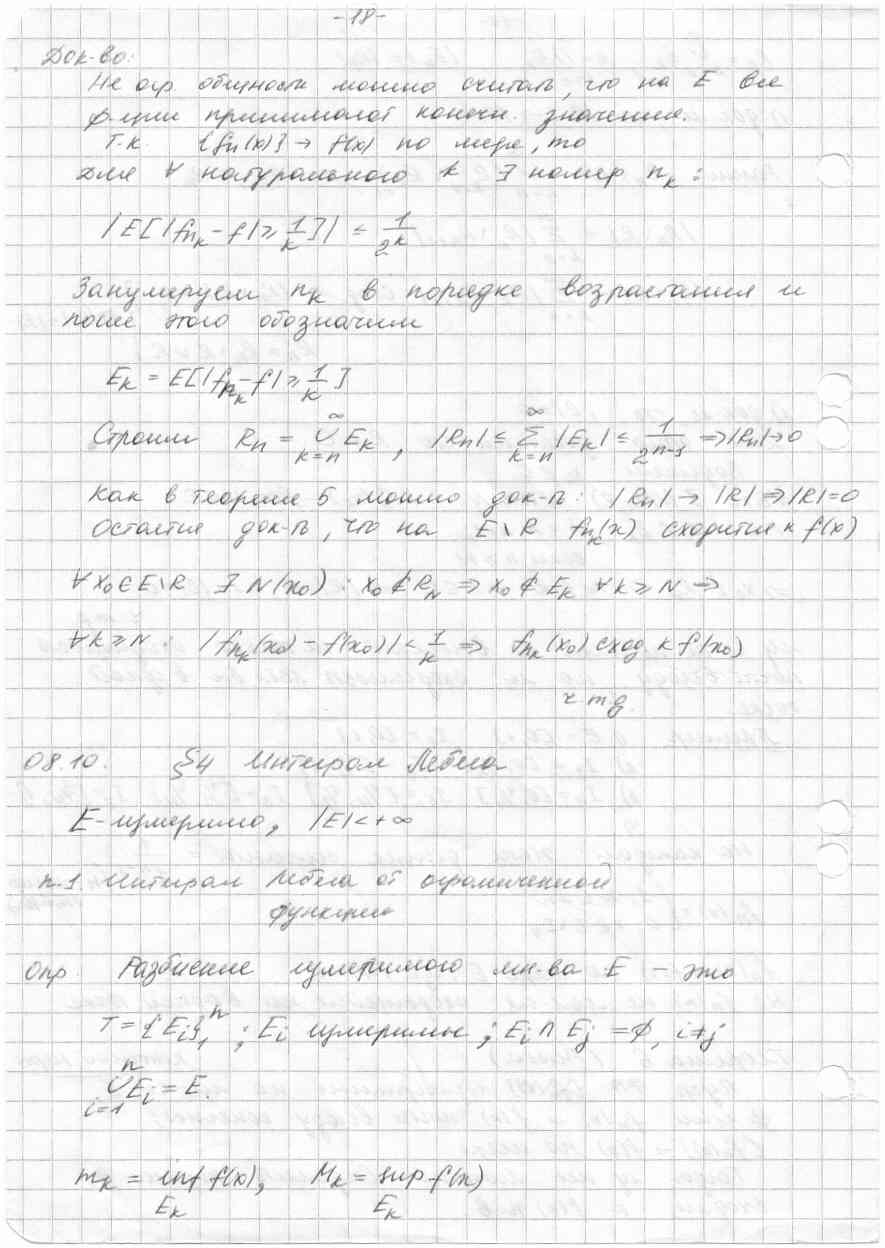 -18-
Док-во:
Не огр. общности можно считать, что на E все
ф-ции принимают конечн. значения.
Т.к. {fₙ(x)} → f(x) по мере, то
для ∀ натурального k ∃ номер n_k :
|E[|f_{n_k} - f| ≥ 1/k]| ≤ 1/2^k
Занумеруем n_k в порядке возрастания и
после этого обозначим
E_k = E[|f_{n_k} - f| ≥ 1/k]
Строим R_n = ∪_{k=n}^∞ E_k , |R_n| ≤ ∑_{k=n}^∞ |E_k| ≤ 1/2^{n-1} ⇒ |R_n| → 0
Как в теореме 5 можно док-ть: |R_n| → |R| ⇒ |R| = 0
Остаётся док-ть, что на E \ R f_{n_k}(x) сходится к f(x)
∀ x₀ ∈ E \ R ∃ N(x₀) : x₀ ∉ R_N ⇒ x₀ ∉ E_k ∀ k ≥ N ⇒
∀ k ≥ N : |f_{n_k}(x₀) - f(x₀)| < 1/k ⇒ f_{n_k}(x₀) сход. к f(x₀)
ч т д.
08.10. §4 Интеграл Лебега
E - измеримо, |E| < +∞
п.1. Интеграл Лебега от ограниченной
функции
Опр. Разбиение измеримого мн-ва E - это
T = {E_i}₁ⁿ ; E_i измеримы ; E_i ∩ E_j = ∅, i ≠ j
∪_{i=1}^n E_i = E.
m_k = inf_{E_k} f(x), M_k = sup_{E_k} f(x)